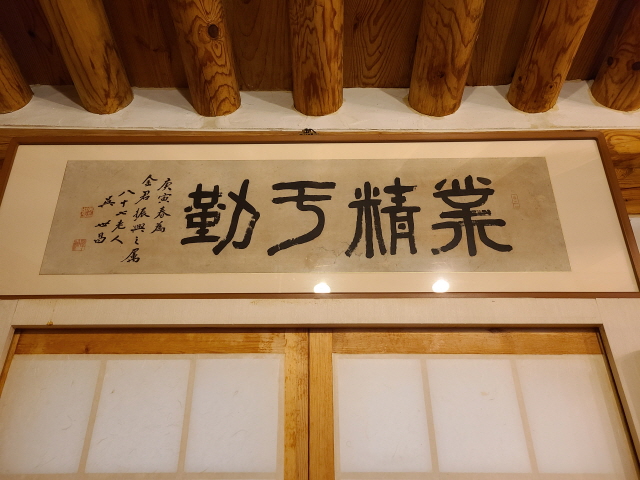 業精于勤
庚寅春為
金君振興之屬
八十七老人
吳世昌